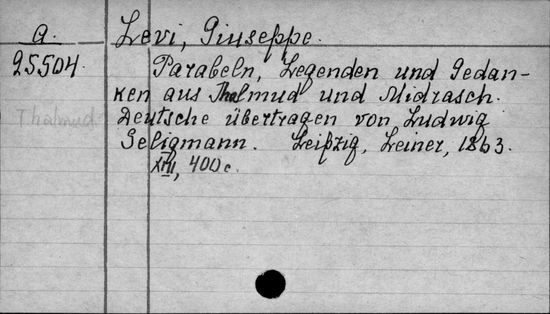 a. Levi, Giuseppe.
25504. Parabeln, Legenden und Gedan-
ken aus Thalmud und Midrasch.
Thalmud Deutsche übertragen von Ludwig
Seligmann. Leipzig, Leiner, 1863.
XIII, 400